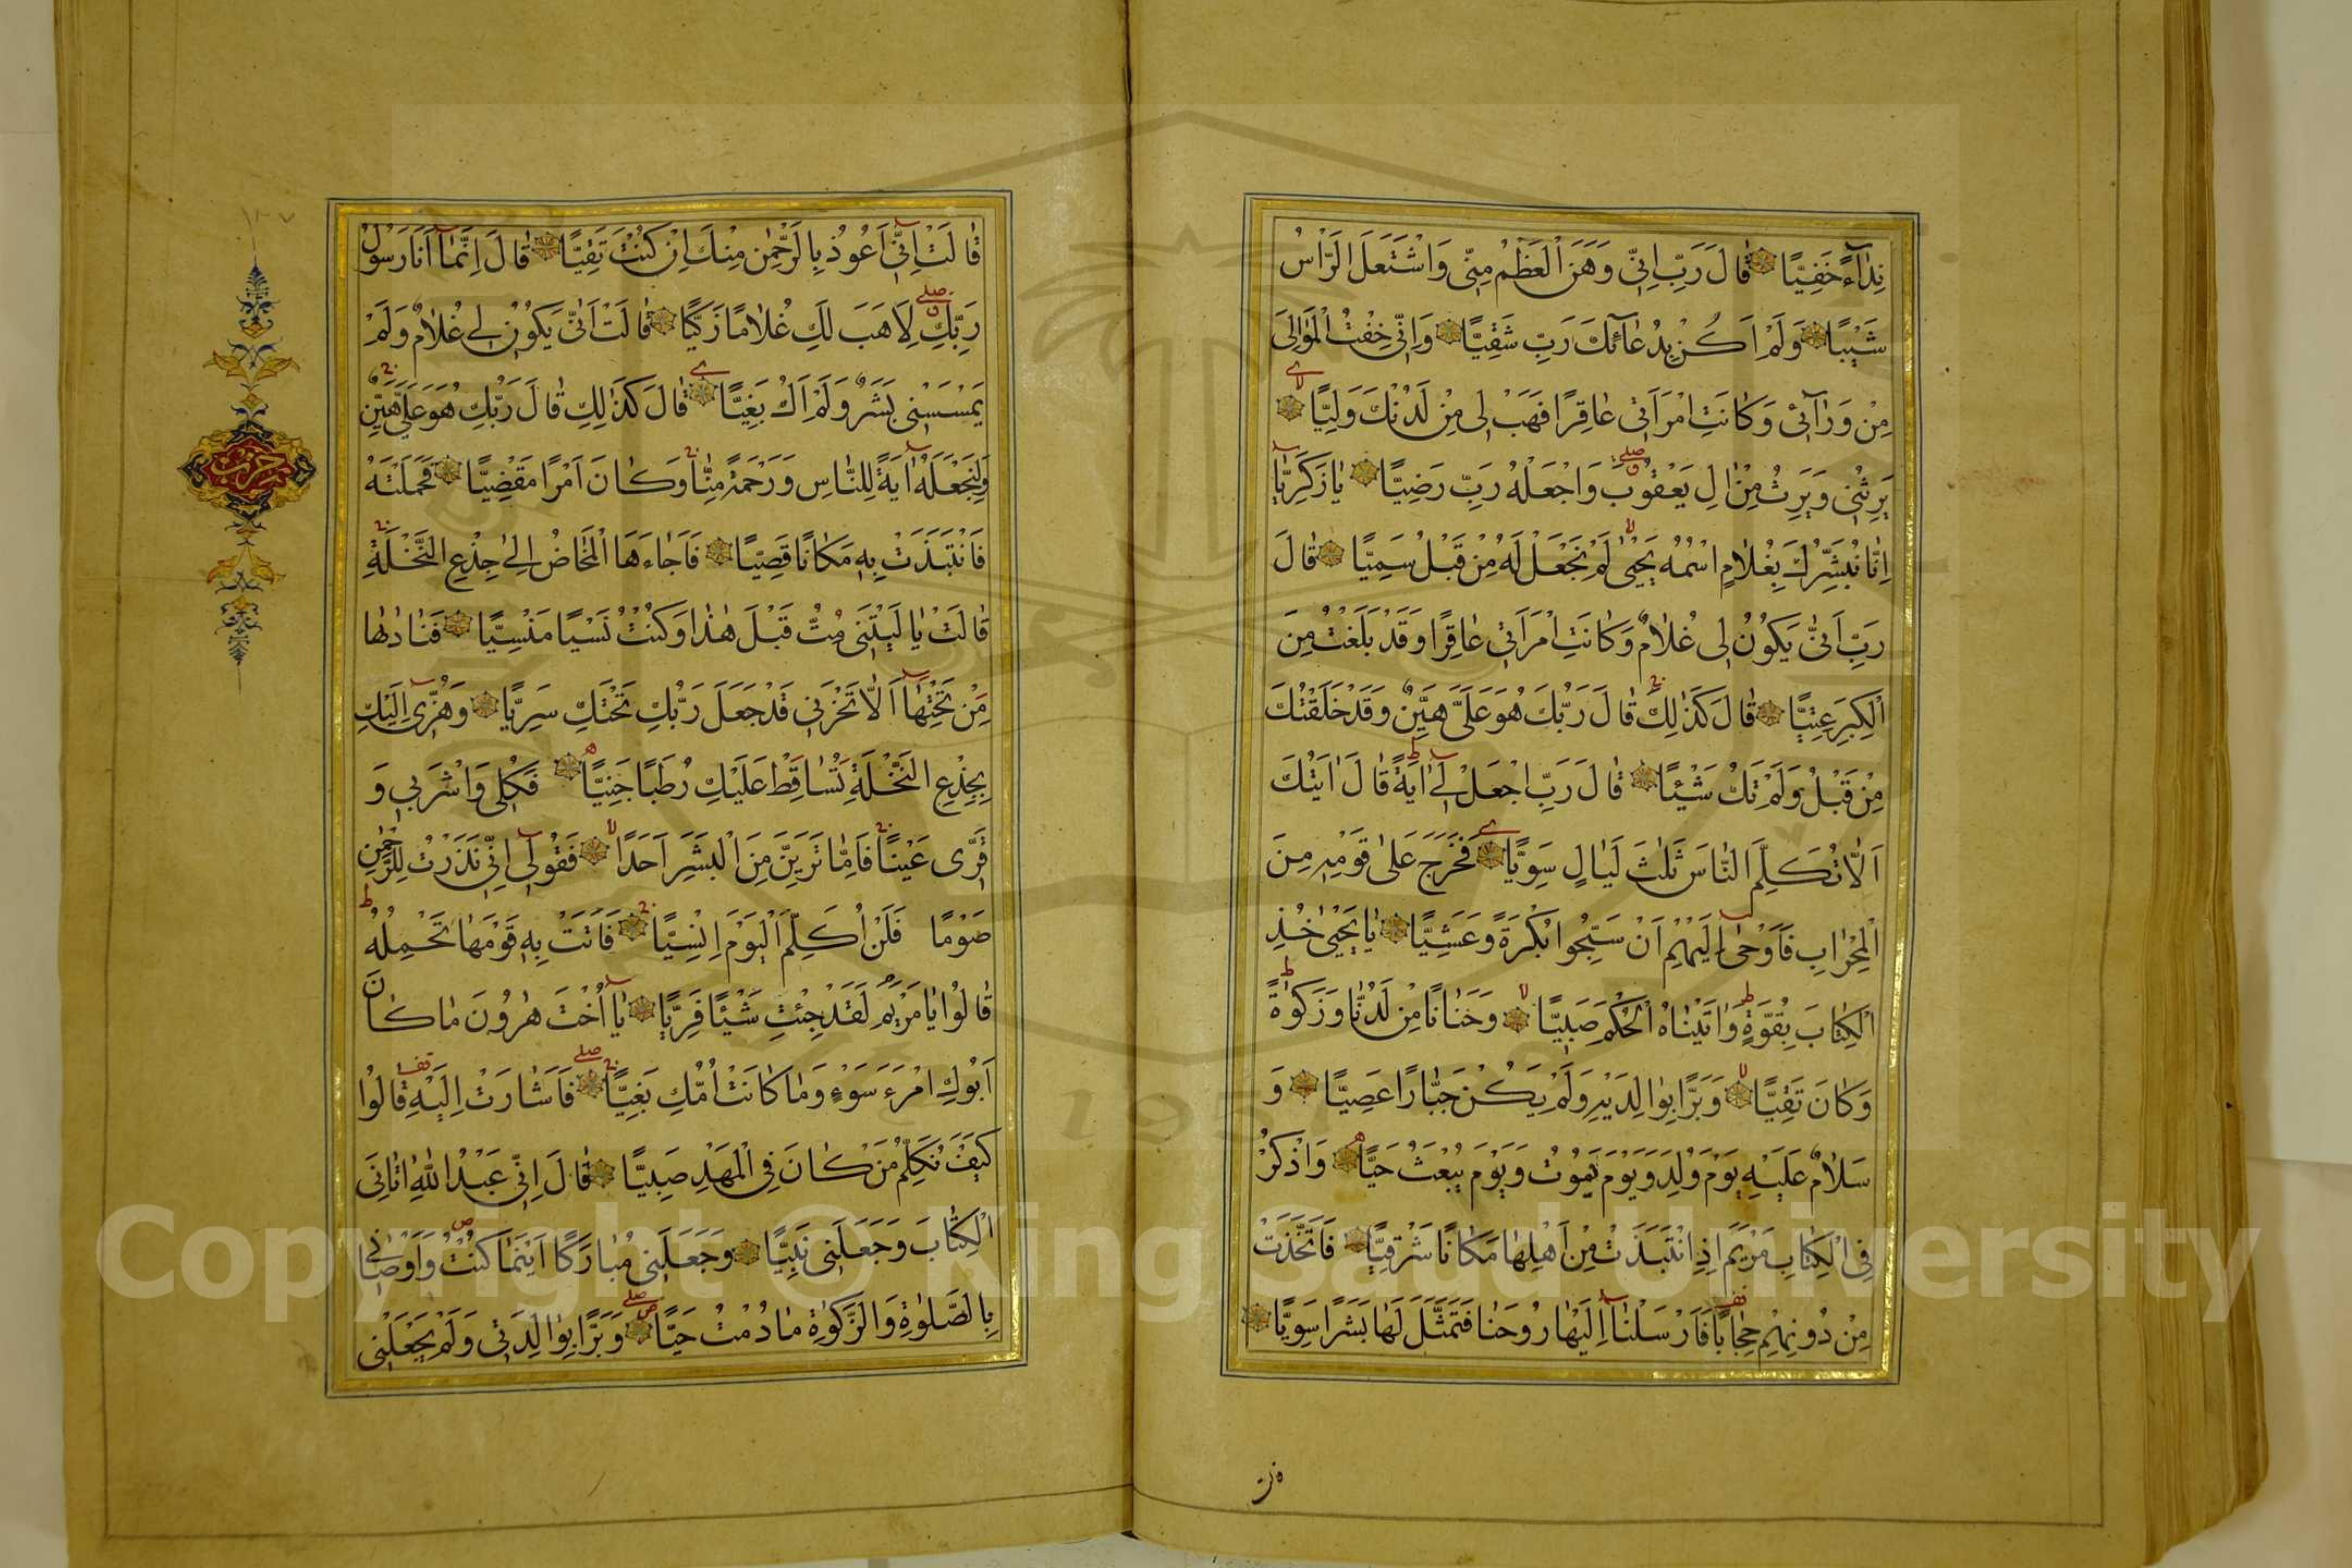 نِدَاءً خَفِيًّا قَالَ رَبِّ اِنِّى وَهَنَ الْعَظْمُ مِنِّى وَاشْتَعَلَ الرَّاْسُ
شَيْبًا وَلَمْ اَكُنْ بِدُعَائِكَ رَبِّ شَقِيًّا وَاِنِّى خِفْتُ الْمَوَالِىَ
مِنْ وَرَائِى وَكَانَتِ امْرَاَتِى عَاقِرًا فَهَبْ لِى مِنْ لَدُنْكَ وَلِيًّا
يَرِثُنِى وَيَرِثُ مِنْ اٰلِ يَعْقُوبَ وَاجْعَلْهُ رَبِّ رَضِيًّا يَا زَكَرِيَّا
اِنَّا نُبَشِّرُكَ بِغُلَامٍ اسْمُهُ يَحْيٰى لَمْ نَجْعَلْ لَهُ مِنْ قَبْلُ سَمِيًّا قَالَ
رَبِّ اَنّٰى يَكُونُ لِى غُلَامٌ وَكَانَتِ امْرَاَتِى عَاقِرًا وَقَدْ بَلَغْتُ مِنَ
الْكِبَرِ عِتِيًّا قَالَ كَذٰلِكَ قَالَ رَبُّكَ هُوَ عَلَىَّ هَيِّنٌ وَقَدْ خَلَقْتُكَ
مِنْ قَبْلُ وَلَمْ تَكُ شَيْئًا قَالَ رَبِّ اجْعَلْ لِى اٰيَةً قَالَ اٰيَتُكَ
اَلَّا تُكَلِّمَ النَّاسَ ثَلٰثَ لَيَالٍ سَوِيًّا فَخَرَجَ عَلٰى قَوْمِهِ مِنَ
الْمِحْرَابِ فَاَوْحٰى اِلَيْهِمْ اَنْ سَبِّحُوا بُكْرَةً وَعَشِيًّا يَا يَحْيٰى خُذِ
الْكِتَابَ بِقُوَّةٍ وَاٰتَيْنَاهُ الْحُكْمَ صَبِيًّا وَحَنَانًا مِنْ لَدُنَّا وَزَكٰوةً
وَكَانَ تَقِيًّا وَبَرًّا بِوَالِدَيْهِ وَلَمْ يَكُنْ جَبَّارًا عَصِيًّا وَ
سَلَامٌ عَلَيْهِ يَوْمَ وُلِدَ وَيَوْمَ يَمُوتُ وَيَوْمَ يُبْعَثُ حَيًّا وَاذْكُرْ
فِى الْكِتَابِ مَرْيَمَ اِذِ انْتَبَذَتْ مِنْ اَهْلِهَا مَكَانًا شَرْقِيًّا فَاتَّخَذَتْ
مِنْ دُونِهِمْ حِجَابًا فَاَرْسَلْنَا اِلَيْهَا رُوحَنَا فَتَمَثَّلَ لَهَا بَشَرًا سَوِيًّا
قَالَتْ اِنِّى اَعُوذُ بِالرَّحْمٰنِ مِنْكَ اِنْ كُنْتَ تَقِيًّا قَالَ اِنَّمَا اَنَا رَسُولُ
رَبِّكِ لِاَهَبَ لَكِ غُلَامًا زَكِيًّا قَالَتْ اَنّٰى يَكُونُ لِى غُلَامٌ وَلَمْ
يَمْسَسْنِى بَشَرٌ وَلَمْ اَكُ بَغِيًّا قَالَ كَذٰلِكِ قَالَ رَبُّكِ هُوَ عَلَىَّ هَيِّنٌ
وَلِنَجْعَلَهُ اٰيَةً لِلنَّاسِ وَرَحْمَةً مِنَّا وَكَانَ اَمْرًا مَقْضِيًّا فَحَمَلَتْهُ
فَانْتَبَذَتْ بِهِ مَكَانًا قَصِيًّا فَاَجَاءَهَا الْمَخَاضُ اِلٰى جِذْعِ النَّخْلَةِ
قَالَتْ يَا لَيْتَنِى مِتُّ قَبْلَ هٰذَا وَكُنْتُ نَسْيًا مَنْسِيًّا فَنَادٰيهَا
مِنْ تَحْتِهَا اَلَّا تَحْزَنِى قَدْ جَعَلَ رَبُّكِ تَحْتَكِ سَرِيًّا وَهُزِّى اِلَيْكِ
بِجِذْعِ النَّخْلَةِ تُسَاقِطْ عَلَيْكِ رُطَبًا جَنِيًّا فَكُلِى وَاشْرَبِى وَ
قَرِّى عَيْنًا فَاِمَّا تَرَيِنَّ مِنَ الْبَشَرِ اَحَدًا فَقُولِى اِنِّى نَذَرْتُ لِلرَّحْمٰنِ
صَوْمًا فَلَنْ اُكَلِّمَ الْيَوْمَ اِنْسِيًّا فَاَتَتْ بِهِ قَوْمَهَا تَحْمِلُهُ
قَالُوا يَا مَرْيَمُ لَقَدْ جِئْتِ شَيْئًا فَرِيًّا يَا اُخْتَ هٰرُونَ مَا كَانَ
اَبُوكِ امْرَءَ سَوْءٍ وَمَا كَانَتْ اُمُّكِ بَغِيًّا فَاَشَارَتْ اِلَيْهِ قَالُوا
كَيْفَ نُكَلِّمُ مَنْ كَانَ فِى الْمَهْدِ صَبِيًّا قَالَ اِنِّى عَبْدُ اللّٰهِ اٰتَانِىَ
الْكِتَابَ وَجَعَلَنِى نَبِيًّا وَجَعَلَنِى مُبَارَكًا اَيْنَمَا كُنْتُ وَاَوْصَانِى
بِالصَّلٰوةِ وَالزَّكٰوةِ مَا دُمْتُ حَيًّا وَبَرًّا بِوَالِدَتِى وَلَمْ يَجْعَلْنِى
حزب
١٣٧
Copyright © King Saud University
1957